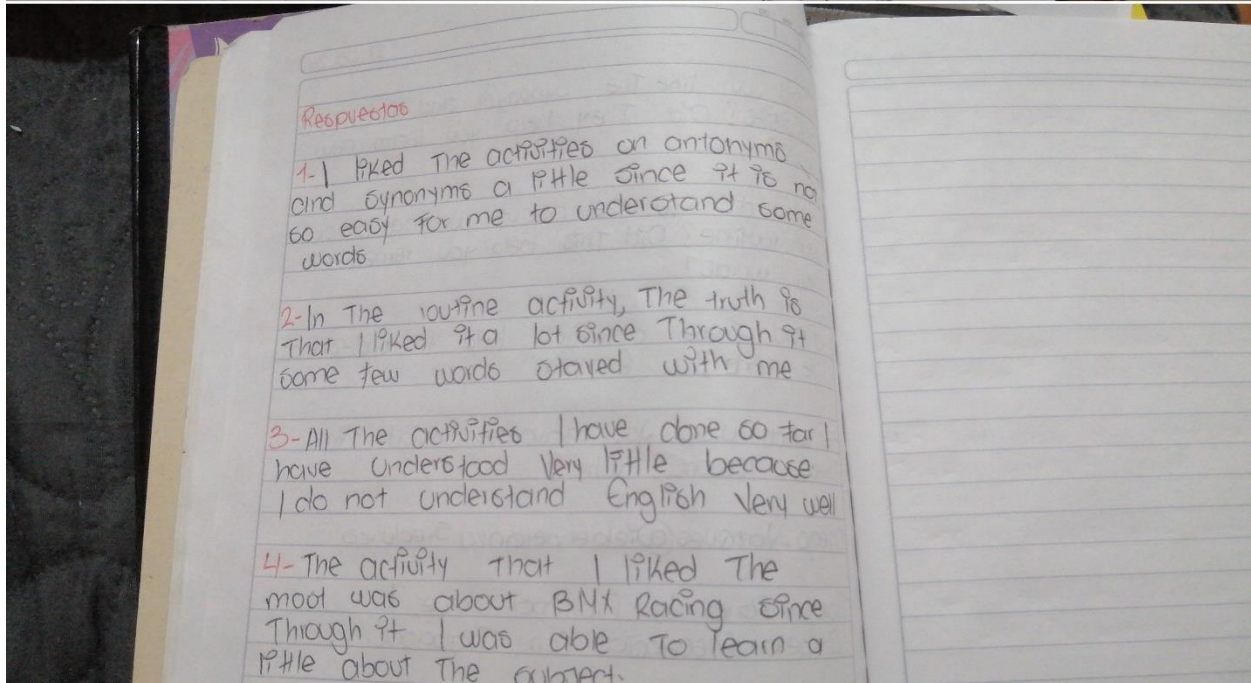 Respuestas
1- I liked The activities on antonyms
and synonyms a little since it is no
so easy for me to understand some
words
2- In The routine activity, The truth is
That I liked it a lot since Through it
some few words stayed with me
3- All The activities I have done so far I
have Understood Very little because
I do not understand English Very well
4- The activity That I liked The
most was about BMX Racing since
Through it I was able To learn a
little about The subject.